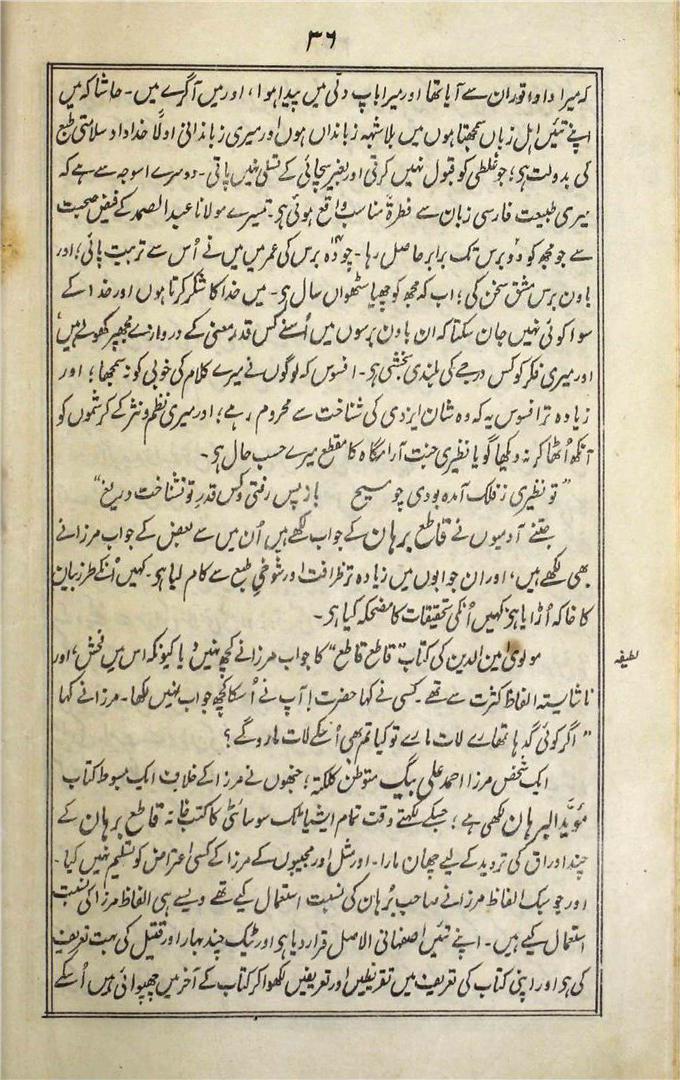 ۳۶
کہ میرا دادا توران سے آیا تھا اور میرا باپ دلّی میں پیدا ہوا، اور میں آگرے میں۔ حاشا کہ میں
اپنے تئیں اہل زباں سمجھتا ہوں میں بلا شبہہ زبانداں ہوں اور میری زباندانی اولًا خداداد سلامتی طبع
کی بدولت ہی؛ جو غلطی کو قبول نہیں کرتی اور بغیر سچائی کے تسلی نہیں پاتی۔ دوسرے اسوجہ سے ہے کہ
میری طبیعت فارسی زبان سے فطرۃً مناسب واقع ہوئی ہی۔ تیسرے مولانا عبد الصمد کے فیض صحبت
سے جو مجھ کو دو برس تک برابر حاصل رہا۔ چودہ برس کی عمر میں میں نے اُس سے تربیت پائی؛ اور
باون برس مشق سخن کی؛ اب کہ مجھ کو چھیاسٹھواں سال ہی۔ میں خدا کا شکر کرتا ہوں اور خدا کے
سوا کوئی نہیں جان سکتا کہ ان باون برسوں میں اُسنے کس قدر معنی کے دروازے مجھپر کھولے ہیں،
اور میری فکر کو کس درجے کی بلندی بخشی ہی۔ افسوس کہ لوگوں نے میرے کلام کی خوبی کو نہ سمجھا؛ اور
زیادہ تر افسوس یہ کہ وہ شان ایزدی کی شناخت سے محروم رہے؛ اور میری نظم و نثر کے کرشموں کو
آنکھ اُٹھا کر نہ دیکھا گویا نظیری جنت آرامگاہ کا مقطع میرے حسب حال ہی۔
”تو نظیری ز فلک آمدہ بودی چو مسیح باز پس رفتی و کس قدر تو نشناخت دریغ“
جتنے آدمیوں نے قاطع برہان کے جواب لکھے ہیں اُن میں سے بعض کے جواب مرزا نے
بھی لکھے ہیں، اور ان جوابوں میں زیادہ تر ظرافت اور شوخیِ طبع سے کام لیا ہی۔ کہیں اُنکے طرز بیان
کا خاکہ اُڑایا ہی کہیں اُنکی تحقیقات کا مضحکہ کیا ہی۔
لطیفہ
مولوی امین الدین کی کتاب ”قاطع قاطع“ کا جواب مرزا نے کچھ نہیں دیا کیونکہ اس میں فحش، اور
ناشایستہ الفاظ کثرت سے تھے۔ کسی نے کہا حضرت! آپ نے اُسکا کچھ جواب نہیں لکھا۔ مرزا نے کہا
”اگر کوئی گدہا تمھارے لات مارے تو کیا تم بھی اُسکے لات مارو گے؟
ایک شخص مرزا احمد علی بیگ متوطن کلکتہ؛ جنھوں نے مرزا کے خلاف ایک مبسوط کتاب
مؤیّد البرہان لکھی ہے؛ جسکے لکھتے وقت تمام ایشیاٹک سوسائٹی کا کتب خانہ قاطع برہان کے
چند اوراق کی تردید کے لیے چھان مارا۔ اور مثل اور مجیبوں کے مرزا کے کسی اعتراض کو تسلیم نہیں کیا۔
اور جو سبک الفاظ مرزا نے صاحب بُرہان کی نسبت استعمال کیے تھے ویسے ہی الفاظ مرزا کی نسبت
استعمال کیے ہیں۔ اپنے تئیں اصفہانی الاصل قرار دیا ہی اور ٹیک چند بہار اور قتیل کی بہت تعریف
کی ہی اور اپنی کتاب کی تعریف میں تقریظیں اور تعریفیں لکھوا کر کتاب کے آخر میں چھپوائی ہیں اُسکے